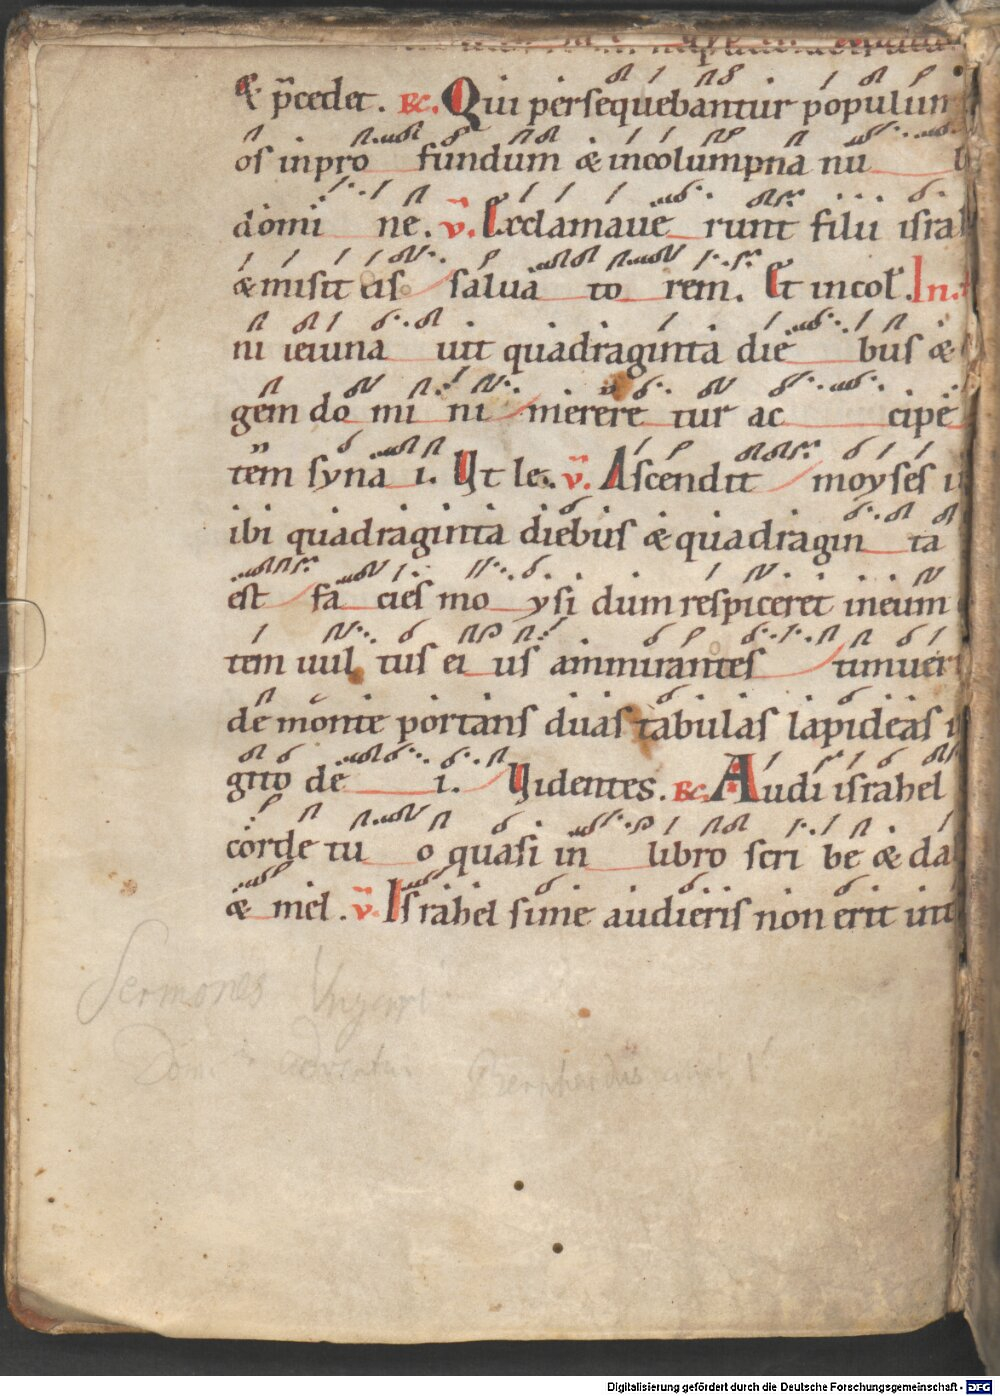 & p̄cedet. R. Qui persequebantur populum
os in pro fundum & in columpna nu b
domi ne. v̄. Exclamaue runt filii isra
& misit eis salua to rem. Et incol. In.
ni ieiuna uit quadraginta die bus &
gem do mi ni merere tur ac cipe
tem syna i. Ut le. v̄. Ascendit moyses i
ibi quadraginta diebus & quadragin ta
est fa cies mo ysi dum respiceret in eum
tem uul tus ei us ammirantes timuer
de monte portans duas tabulas lapideas
gito de i. Uidentes. R. Audi israhel
corde tu o quasi in libro scri be & da
& mel. v̄. Israhel si me audieris non erit in t
Sermones
Dom adventu Bernhardus
Digitalisierung gefördert durch die Deutsche Forschungsgemeinschaft - DFG